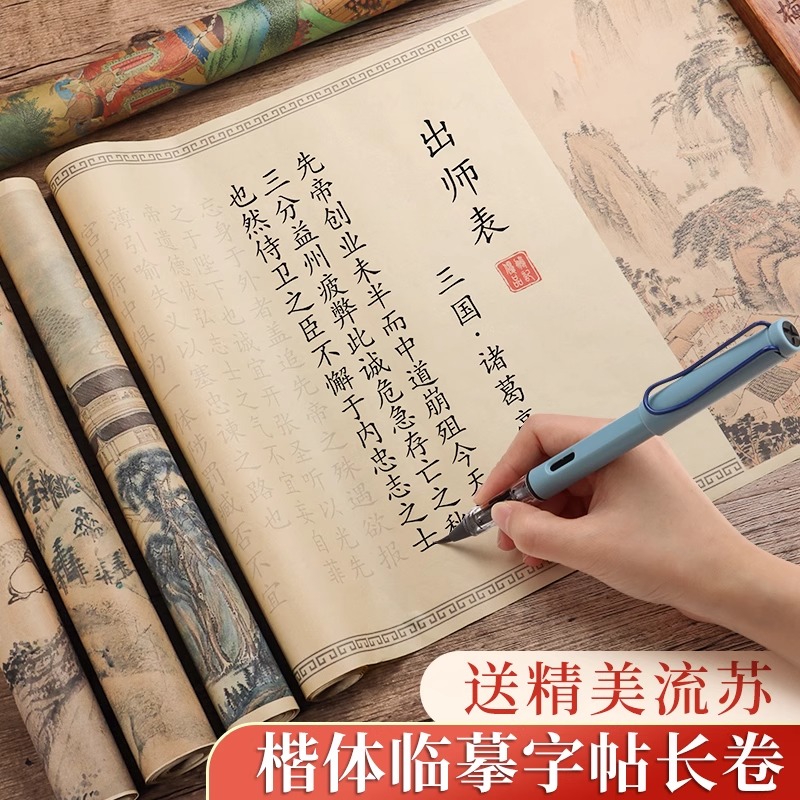 出师表
三国·诸葛亮
先帝创业未半而中道崩殂今天
三分益州疲弊此诚危急存亡之秋
也然侍卫之臣不懈于内忠志之士
忘身于外者盖追先帝之殊遇欲报
之于陛下也诚宜开张圣听以光先
帝遗德恢弘志士之气不宜妄自菲
薄引喻失义以塞忠谏之路也
宫中府中俱为一体陟罚臧否不宜
送精美流苏
楷体临摹字帖长卷